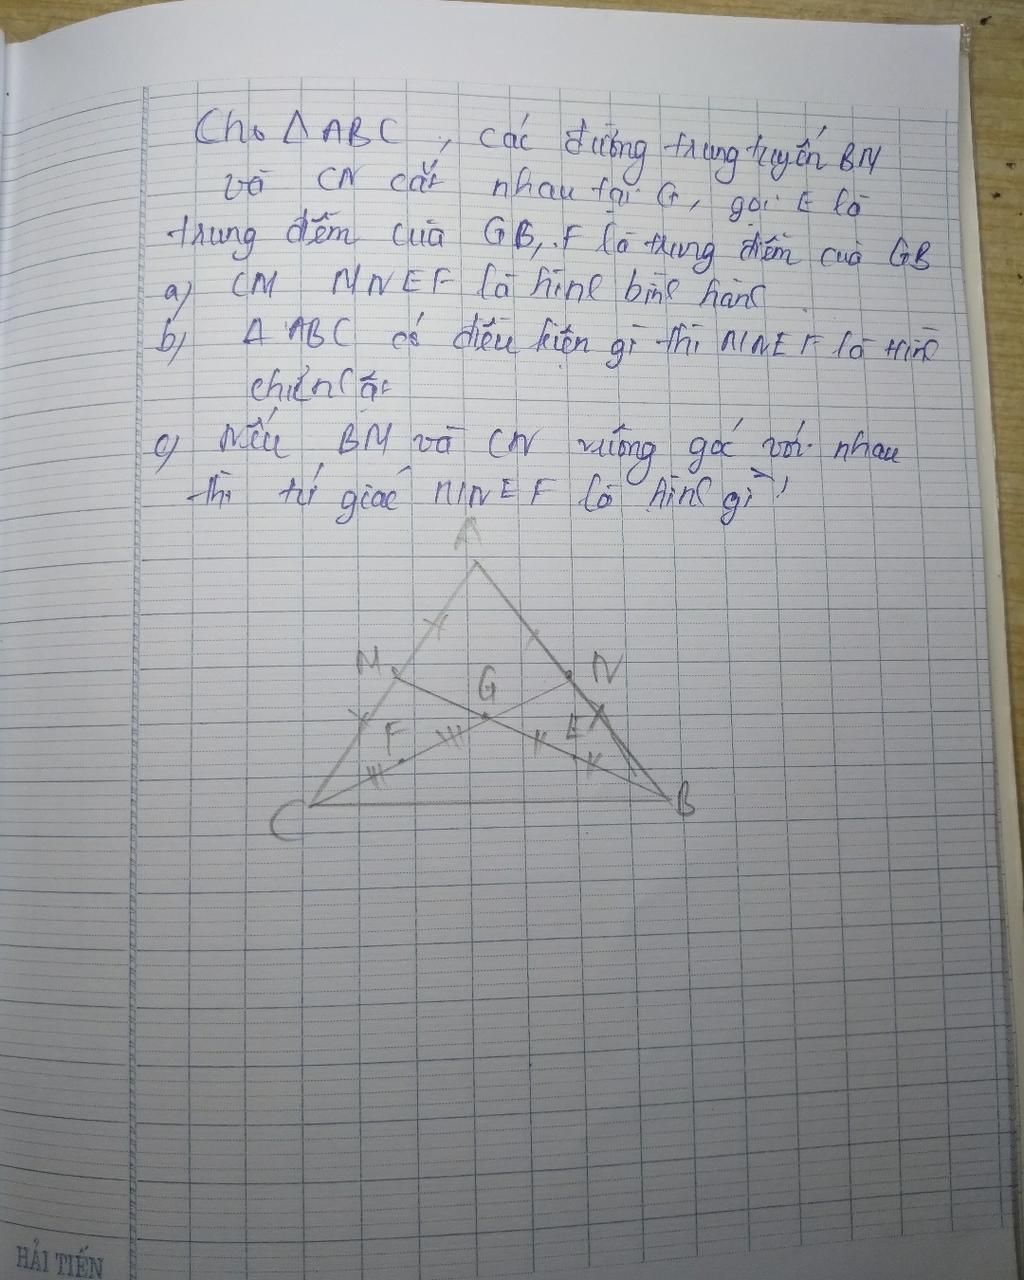 Cho Δ ABC, các đường trung tuyến BM
và CN cắt nhau tại G, gọi E là
trung điểm của GB, F là trung điểm của GB
a) CM MNEF là hình bình hành
b) Δ ABC có điều kiện gì thì MNEF là Hình
chữ nhật
c) Nếu BM và CN vuông góc với nhau
thì tứ giác MNEF là hình gì?
A
M
G
N
F
E
C
B
HẢI TIẾN